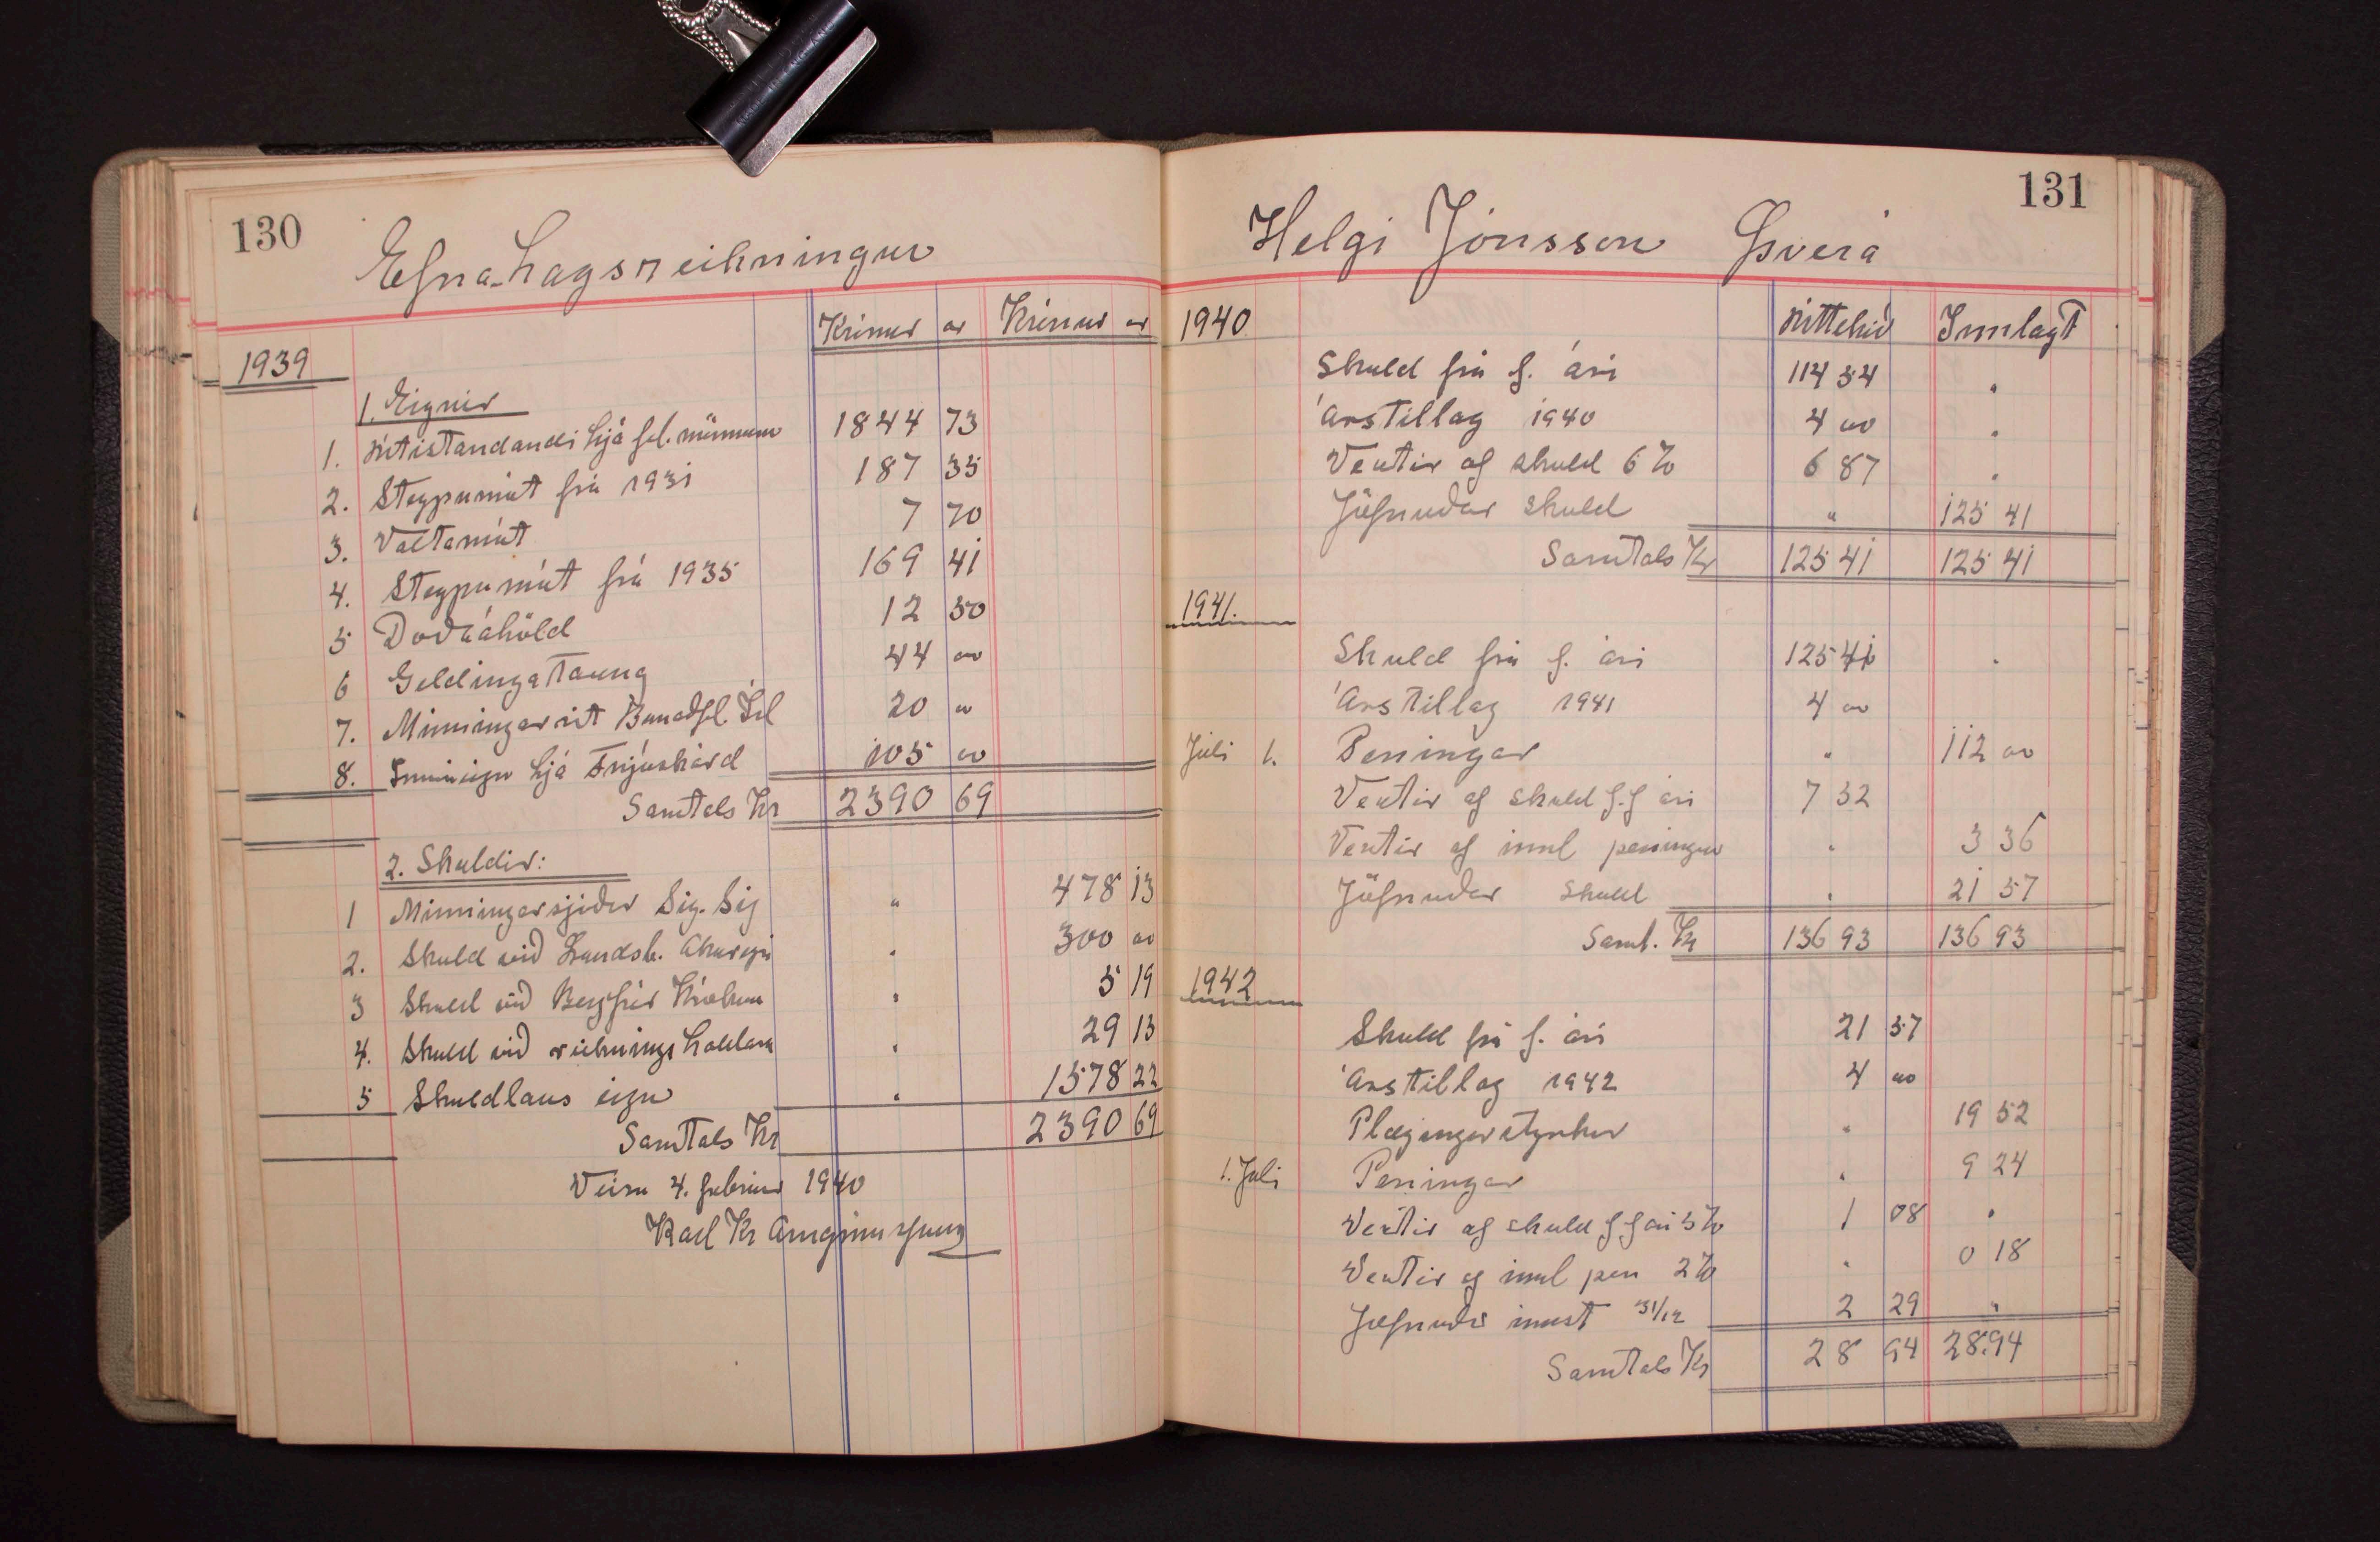 130
Efnahagsreikningur
Krónur ar Krónur ar
1939
1. Eignir
1. Útistandandi hjá fél. mönnum 1844 73
2. Steypumót frá 1931 187 35
3. Valtamót 7 70
4. Steypumót frá 1935 169 41
5 Doðaáhöld 12 50
6 Geldingataung 44 00
7. Minningarrit Bunaðfl. Ísl 20 00
8. Inneign hjá Frjóskárd 105 00
Samtals Kr 2390 69
2. Skuldir:
1 Minningarsjóður Sig. Sig " 478 13
2. Skuld við Landsb. Akureyri " 300 00
3 Skuld við Bergþór " 5 19
4. Skuld við reiknings haldara " 29 13
5 Skuldlaus eign " 1578 22
Samtals Kr 2390 69
4. febrúar 1940
Karl Kr Arngrímsson
131
Helgi Jónsson Þverá
1940 Úttekið Innlagt
Skuld frá f. ári 114 54 "
Árstillag 1940 4 00 "
Vextir af skuld 6% 6 87 "
Jöfnuðar skuld " 125 41
Samtals Kr 125 41 125 41
1941.
Skuld frá f. ári 125 41 "
Árstillag 1941 4 00
Júli 1. Peningar " 112 00
Vextir af skuld f.f ári 7 52
Vextir af innl peningum " 3 36
Jöfnuðar skuld " 21 57
Samt. Kr 136 93 136 93
1942
Skuld frá f. ári 21 57
Árstillag 1942 4 00
Plægingarstyrkur " 19 52
1. Júli Peningar " 9 24
Vextir af skuld f f ári 5% 1 08 "
Vextir af innl pen 2% " 0 18
Jöfnuður innst 31/12 2 29 "
Samtals Kr 28 94 28.94